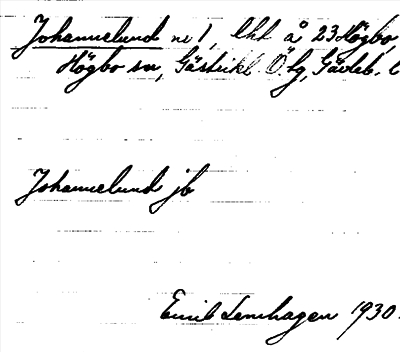 Johannelund nr 1, lht å 23 Högbo,
Högbo sn, Gästrikl. Ö. tg, Gävleb. l
Johannelund jb
Emil Lenhagen 1930.